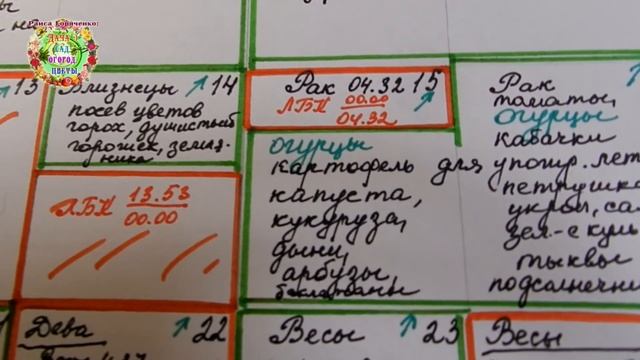 Раиса Горяченко:
ДАЧА
САД
ОГОРОД
ЦВЕТЫ
13
Близнецы ↑ 14
посев цветов
горох, душистый
горошек, земля-
ника
ЛБК 13.53
00.00
Рак 04.32 15
ЛБК 00.00
04.32
огурцы
картофель для
капуста,
кукуруза,
дыни,
арбузы
баклажаны
Рак
томаты,
огурцы
кабачки
упот. лет
петрушка
укроп, са
зел-е куль
тыквы
подсолнечни
Дева ↑ 22
Весы ↑ 23
Весы